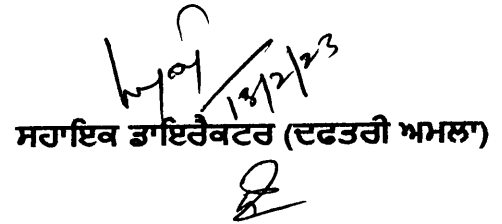 13/2/23
ਸਹਾਇਕ ਡਾਇਰੈਕਟਰ (ਦਫਤਰੀ ਅਮਲਾ)